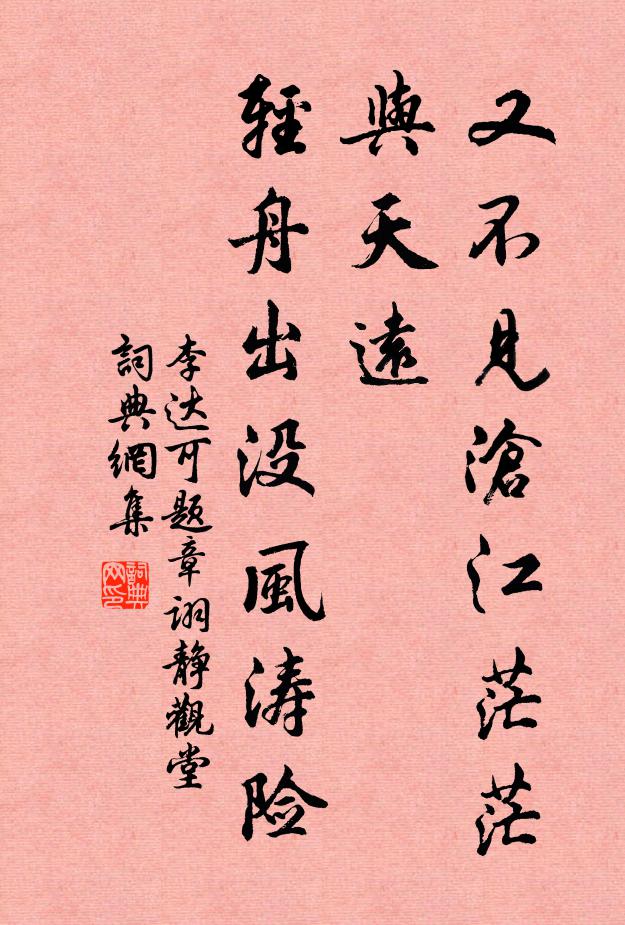 又不見滄江茫茫
與天遠
輕舟出没風涛险
李达可题章诩静觀堂
詞典網集
詞典網印